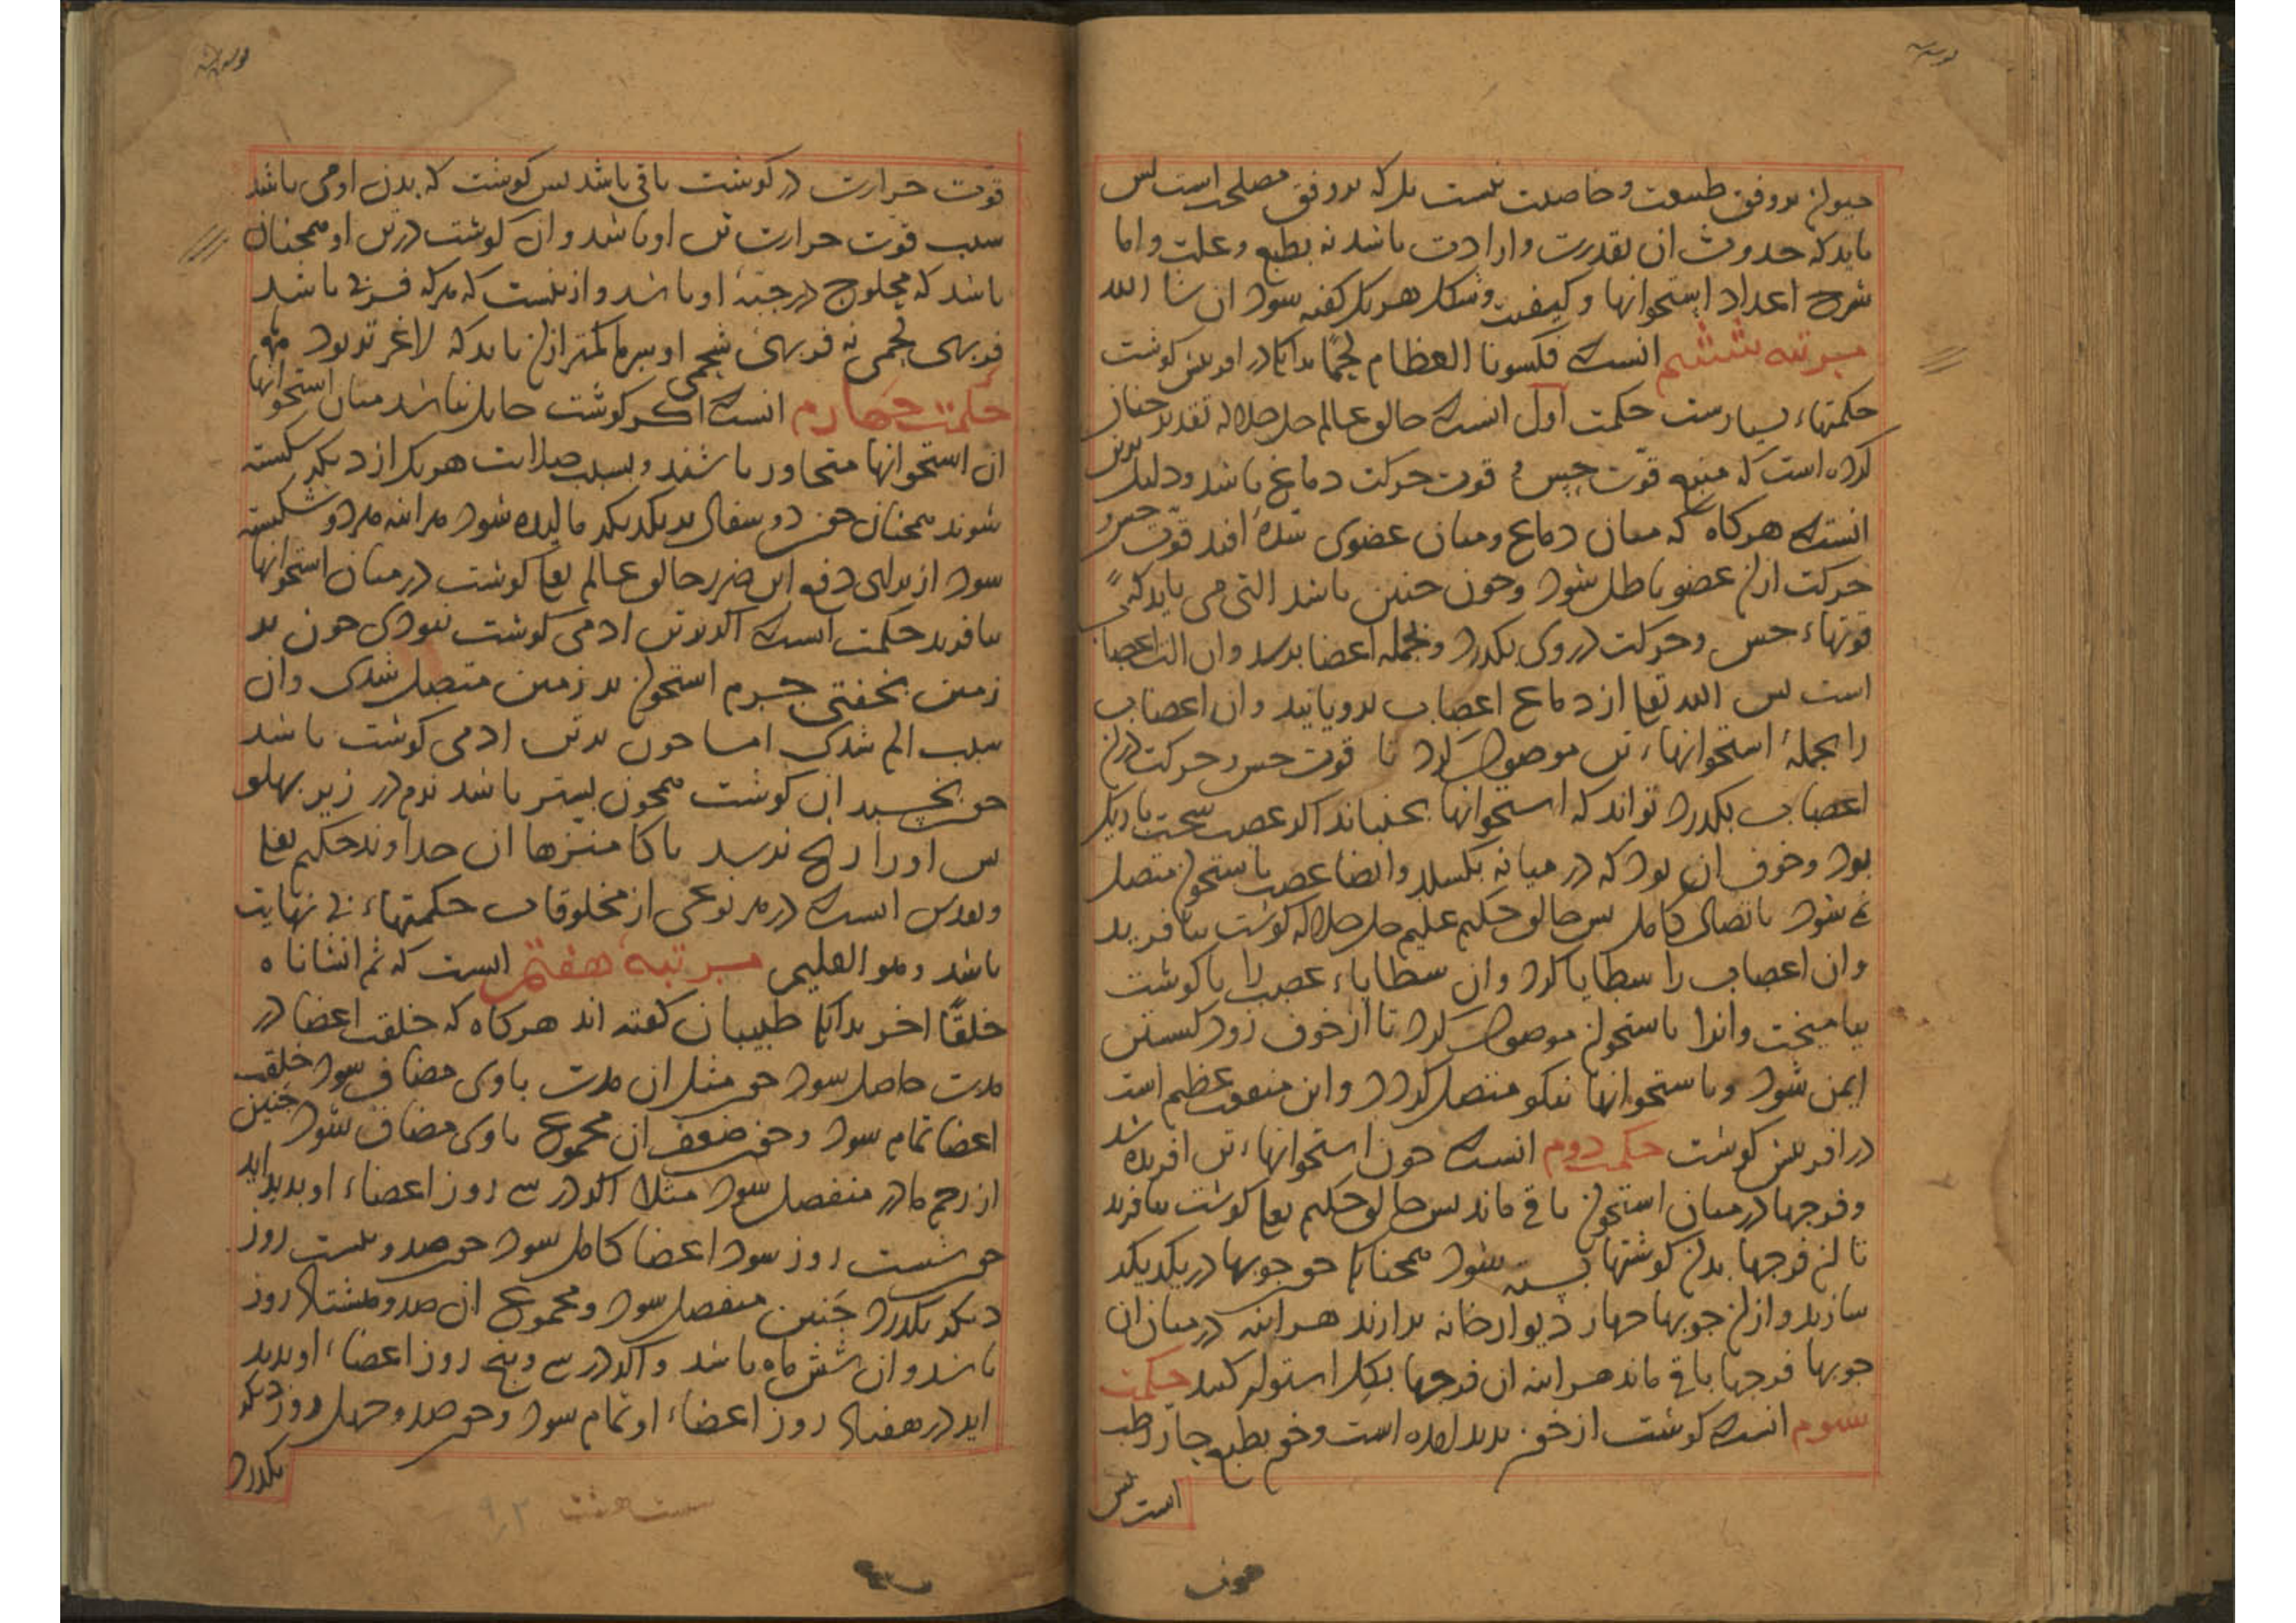 حیوان بر وفق طبیعت و خاصیت نیست بلکه بر وفق مصلحت است پس
باید که حدوث ان بقدرت و ارادت باشد نه بطبع و علت و اما
شرح اعداد استخوانها و کیفیت و شکل هر یک گفته شود ان شا الله
مرتبه ششم انست که فکسونا العظام لحمًا بدانکه در افرینش کوشت
حکمتهاء بسیارست حکمت اول انست که خالق عالم جل جلاله تقدیر چنان
کرده است که منبع قوّت حِس و قوت حرکت دماغ باشد و دلیل برین
انست که هرکاه که میان دماغ و میان عضوی سُدّه افتد قوّت حس و
حرکت ازان عضو باطل شود و چون چنین باشد التی می باید کی
قوتهاء حس و حرکت در وی بکذرد و بجمله اعضا برسد و ان الت اعصاب
است پس الله تعا از دماغ اعصاب برویانید و ان اعصاب
را بجملهٔ استخوانهاء تن موصول کرد تا قوت حس و حرکت دران
اعصاب بکذرد تواند که استخوانها بجنباند اکر عصب سخت باریک
بود و خوف ان بود که در میانه بکسلد و ایضا عصب باستخوان متصل
نمی شود باتصال کامل پس خالق حکیم علیم جل جلاله کوشت بیافرید
و ان اعصاب را شظایا کرد و ان شظایاء عصب را با کوشت
بیامیخت و انرا باستخوان موصول کرد تا از خوف زود کسستن
ایمن شود و باستخوانها نیکو متصل کردد و این منفعت عظیم است
در افرینش کوشت حکمت دوم انست که چون استخوانهاء تن افریده شد
و فرجها در میان استخوان باقی ماند پس خالق حکیم تعا کوشت بیافرید
تا ان فرجها بدان کوشتها بسته شود همچنانکه چون چوبها در یکدیکر
سازند و ازان چوبها چهار دیوار خانه برارند هراینه در میان ان
چوبها فرجها باقی ماند هراینه ان فرجها بکل استوار کنند حکمت
سوم انست که کوشت از خون پدید امده است و خون بطبع حار رطب
است پس
قوت حرارت در کوشت باقی باشد پس کوشت که بدن اومی باشد
سبب قوت حرارت تن او باشد و ان کوشت در تن او همچنان
باشد که محلوج در جبّهٔ او باشد و ازینست که هرکه فربی باشد
فربهی لحمی نه فربهی شحمی او سرما کمتر ازان یابد که لاغرتر بود
حکمت چهارم انست که اکر کوشت حایل نباشد میان استخوانها
ان استخوانها متجاور باشند و بسبب صلابت هر یک از دیکر شکسته
شوند همچنان چون دو سفال بر یکدیکر مالیده شود هراینه هر دو شکسته
شود از برای دفع این ضرر خالق عالم تعا کوشت در میان استخوانها
بیافرید حکمت انست که اکر بر تن ادمی کوشت نبودی چون بر
زمین بخفتی جرم استخوان بر زمین متصل شدی و ان
سبب الم شدی اما چون بر تن ادمی کوشت باشد
چون بخسبد ان کوشت همچون بستر باشد نرم در زیر پهلو
پس او را رنج نرسد پاکا منزها ان خداوند حکیم تعا
و تقدس انست که در هر نوعی از مخلوقات حکمتهاء بی نهایت
باشد و هو العلیم مرتبهٔ هفتم انست که ثم انشاناه
خلقًا اخر بدانکه طبیبان کفته اند هرکاه که خلقت اعضا در
مدت حاصل شود چون مثل ان مدت باوی مضاف شود خلقت
اعضا تمام شود و چون ضعف ان مجموع باوی مضاف شود جنین
از رحم مادر منفصل شود مثلا اکر در سی روز اعضاء او پدید اید
چون شست روز شود اعضا کامل شود چون صد و بیست روز
دیکر بکذرد جَنین منفصل شود و مجموع ان صد و هشتاد روز
باشد و ان شش ماه باشد و اکر در سی و پنج روز اعضاء او پدید
اید در هفتاد روز اعضاء او تمام شود و چون صد و چهل روز دیکر
بکذرد